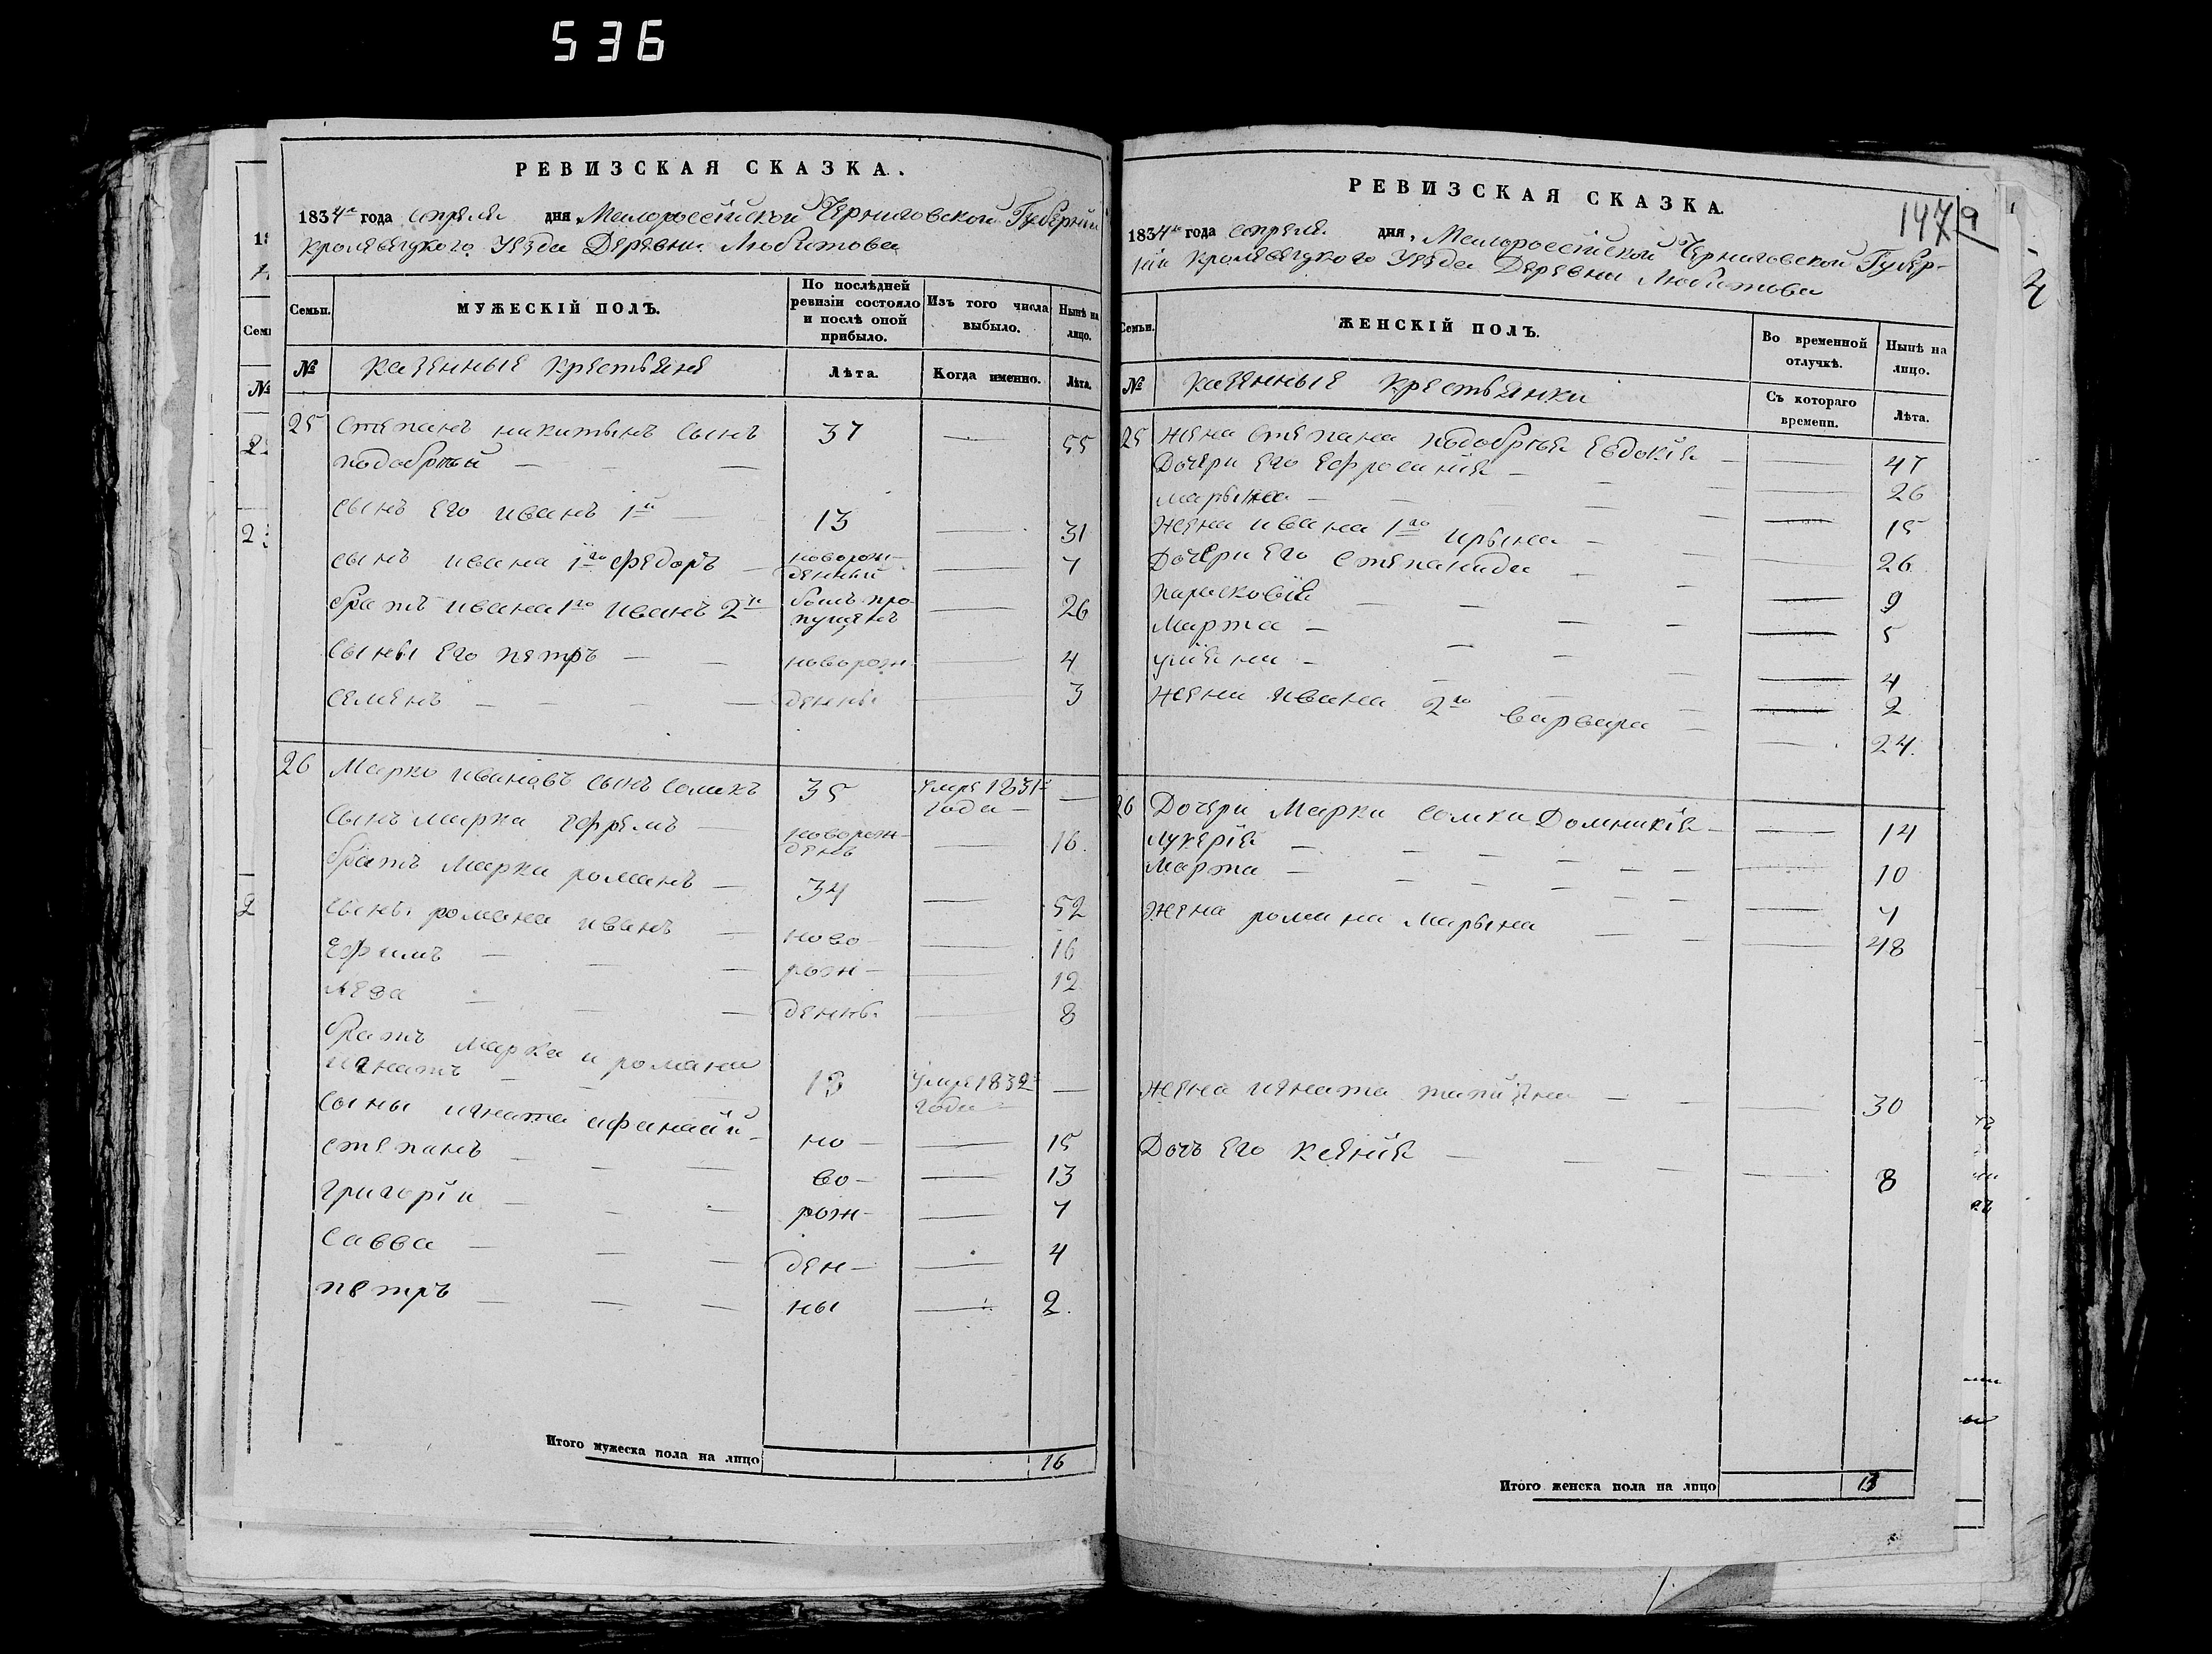 536
РЕВИЗСКАЯ СКАЗКА.
1834го года апреля дня Малороссійской Черниговской Губерніи
Кролевецкого Уезда Деревни Любитова
Семьи.
МУЖЕСКІЙ ПОЛЪ.
По послѣдней ревизіи состояло и послѣ оной прибыло.
Изъ того числа выбыло.
Нынѣ на лицо.
№ казенные крестьяне Лѣта. Когда именно. Лѣта.
25 Степанъ никитинъ сынъ 37 — 55
подобрый — — —
сынъ его иванъ 1й — 13 — 31
сынъ ивана 1го федоръ — новорож-денный — 7
братъ ивана 1го иванъ 2й былъ про-пущенъ — 26
сыны его петръ — — новорож- — 4
семенъ — — — — денны — 3
26 Марко ивановъ сынъ сомикъ 35 умре 1831го года — —
сынъ марка ефремъ — новорож-денъ — 16.
братъ марка романъ — 34 — 52
сыны романа иванъ — ново- — 16
ефимъ — — — рож- — 12
леза — — — денны — 8
братъ марка и романа
игнатъ — — — 13 умре 1832го года — —
сыны игната афанасій — но — — 15
степанъ — — — во — — 13
григорій — — — рож — — 7
савва — — — ден — — 4
петръ — — — ны — 2.
Итого мужеска пола на лицо 16
РЕВИЗСКАЯ СКАЗКА.
147 9
1834го года апреля дня, Малороссійской Черниговской Губер-
ніи Кролевецкого Уезда Деревни Любитова
Семьи.
ЖЕНСКІЙ ПОЛЪ.
Во временной отлучкѣ.
Нынѣ на лицо.
№ казенные крестьянки Съ котораго времени. Лѣта.
25 жена степана подобрыя Евдокія — — 47
Дочери его ефросинія — — — — 26
марьяна — — — — 15
жена ивана 1го ирына — — — 26
Дочери его степанида — — — 9
парасковія — — — — 5
марта — — — — 4
уліяна — — — — 2
жена ивана 2го варвара — — 24.
26 Дочери Марка сомка Домникія — — 14
лукерія — — — — — 10
марта — — — — — 7
жена романа марьяна — — — 48
жена игната татіяна — — — 30
Дочь его ксенія — — — — 8
Итого женска пола на лицо 13